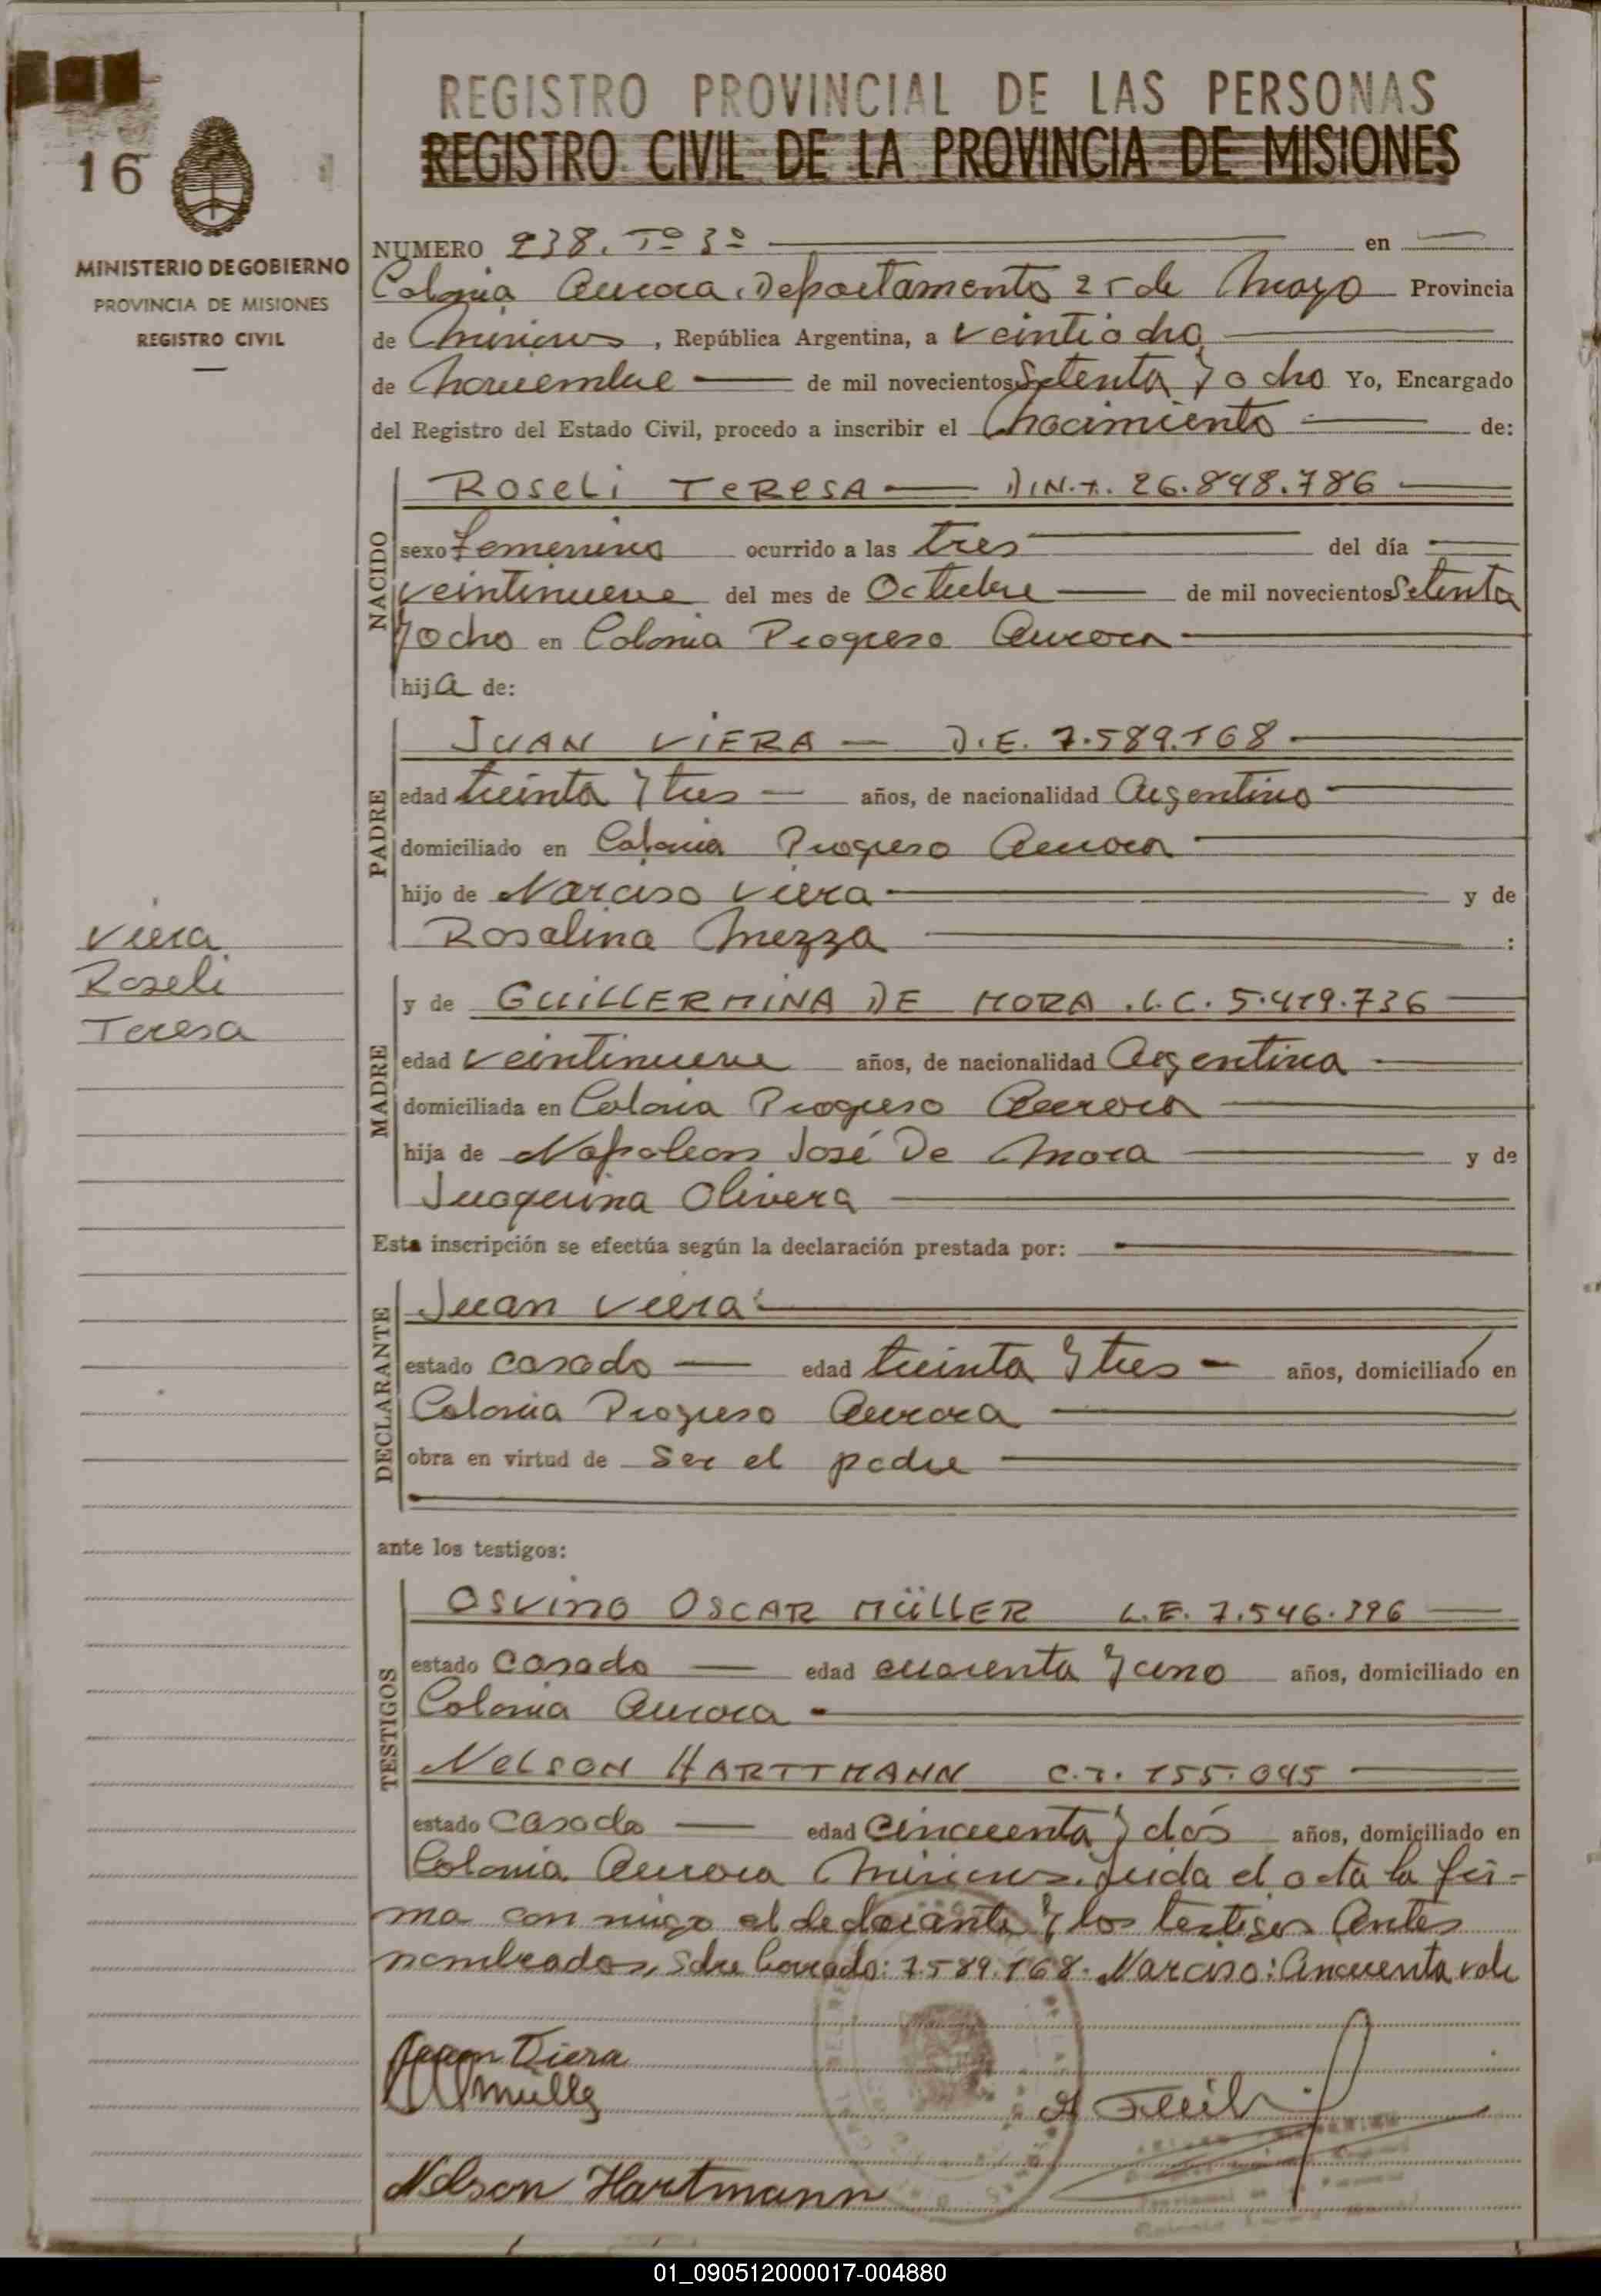 REGISTRO PROVINCIAL DE LAS PERSONAS
REGISTRO CIVIL DE LA PROVINCIA DE MISIONES
16
MINISTERIO DE GOBIERNO
PROVINCIA DE MISIONES
REGISTRO CIVIL
NUMERO 238. Tº 3º en
Colonia Aurora, Departamento 25 de Mayo Provincia
de Misiones, República Argentina, a veintiocho
de Noviembre de mil novecientos setenta y ocho Yo, Encargado
del Registro del Estado Civil, procedo a inscribir el Nacimiento de:
NACIDO
ROSELI TERESA — D.N.I. 26.848.786
sexo femenino ocurrido a las tres del día
veintinueve del mes de Octubre de mil novecientos setenta
y ocho en Colonia Progreso Aurora
hija de:
PADRE
JUAN VIERA — D.E. 7.589.168
edad treinta y tres — años, de nacionalidad Argentino
domiciliado en Colonia Progreso Aurora
hijo de Narciso Viera y de
Rosalina Mezza :
Viera
Roseli
Teresa
MADRE
y de GUILLERMINA DE MORA .L.C. 5.419.736
edad veintinueve años, de nacionalidad Argentina
domiciliada en Colonia Progreso Aurora
hija de Napoleon José De Mora y de
Juaquina Olivera
Esta inscripción se efectúa según la declaración prestada por:
DECLARANTE
Juan Viera
estado casado — edad treinta y tres — años, domiciliado en
Colonia Progreso Aurora
obra en virtud de Ser el padre
ante los testigos:
TESTIGOS
OSVINO OSCAR MÜLLER L.E. 7.546.396
estado casado — edad cuarenta y uno años, domiciliado en
Colonia Aurora
NELSON HARTTMANN C.I. 155.045
estado casado — edad cincuenta y dós años, domiciliado en
Colonia Aurora Misiones. Leida el acta la fir-
ma con migo el declarante y los testigos Antes
nombrados, Sobre borrado: 7.589.168. Narciso: Cincuenta vale
Juan Viera
Müller
Nelson Hartmann
01_090512000017-004880